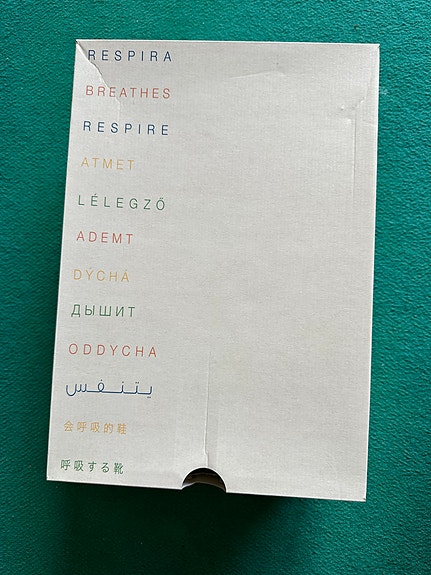 RESPIRA
BREATHES
RESPIRE
ATMET
LÉLEGZŐ
ADEMT
DÝCHÁ
ДЫШИТ
ODDYCHA
يتنفس
会呼吸的鞋
呼吸する靴